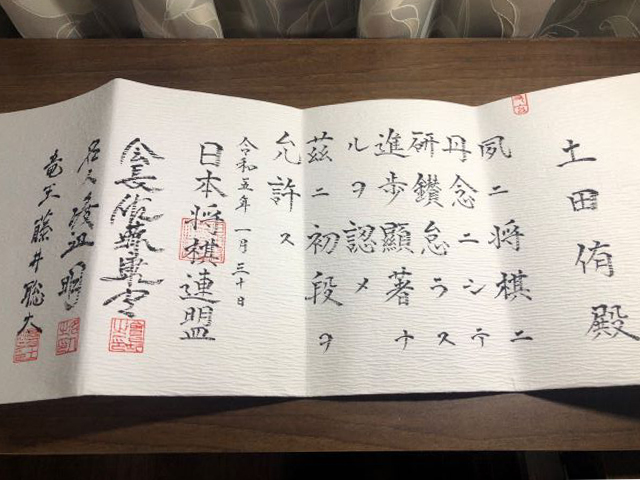 土田侑殿
夙ニ将棋ニ
丹念ニシテ
研鑚怠ラス
進歩顯著ナ
ルヲ認メ
茲ニ初段ヲ
允許ス
令和五年一月三十日
日本将棋連盟
会長佐藤康光
名人渡辺明
竜王藤井聡太